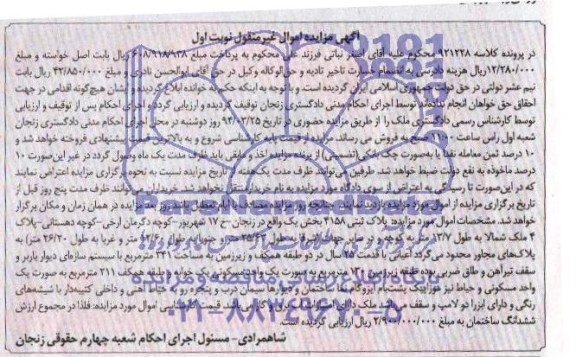 آگهی مزایده اموال غیرمنقول نوبت اول
در پرونده کلاسه ۹۲۱۲۲۸ محکوم علیه آقای نباتی فرزند علی محکوم به پرداخت مبلغ ریال بابت اصل خواسته و مبلغ
۱۲/۲۸۰/۰۰۰ ریال هزینه دادرسی به انضمام خسارت تاخیر تادیه و حق‌الوکاله وکیل در حق آقای ابوالحسن نادری و مبلغ ۳۲/۸۵۰/۰۰۰ ریال بابت
نیم عشر دولتی در حق دولت جمهوری اسلامی ایران گردیده است و با توجه به اینکه محکوم به خوانده ابلاغ گردیده و ایشان هیچگونه اقدامی در جهت
احقاق حق خواهان انجام نداده‌اند توسط اجرای احکام مدنی دادگستری زنجان توقیف گردیده و ارزیابی گردد و اجرای احکام پس از توقیف و ارزیابی
توسط کارشناس رسمی دادگستری ملک را از طریق مزایده حضوری در تاریخ ۹۴/۰۳/۲۵ روز دوشنبه در محل اجرای احکام مدنی دادگستری زنجان
شعبه اول راس ساعت ۱۱ صبح به فروش می رساند. مزایده از قیمت پایه کارشناسی شروع و به بالاترین قیمت پیشنهادی فروخته خواهد شد و
۱۰ درصد ثمن معامله نقدا یا بصورت چک بانکی (تضمینی) از برنده مزایده اخذ و مابقی باید ظرف مدت یک ماه وصول گردد در غیر این‌صورت ۱۰
درصد ماخوذه به نفع دولت ضبط خواهد شد. طرفین می توانند ظرف مدت یک‌هفته از تاریخ مزایده نسبت به نحوه برگزاری مزایده اعتراض نمایند
که در این‌صورت تا رسیدگی به اعتراض از سوی دادگاه مورد مزایده به نام خریدار منتقل نخواهد شد. خریداران می توانند ظرف مدت پنج روز قبل از
تاریخ برگزاری مزایده از اموال مورد مزایده بازدید نمایند. چنانچه روز مزایده مصادف با ایام تعطیل باشد روز بعد از مزایده در همان زمان و مکان برگزار
خواهد شد. مشخصات اموال مورد مزایده: پلاک ثبتی ۴۱۵۸ بخش یک واقع در زنجان-خ ۱۷ شهریور-کوچه دگرمان ارخی-کوچه دهستانی-پلاک
۴ ملک شمالا به طول ۱۳/۷ متر به کوچه و از سایر جهات شرقا به طول متر جنوبا به طول متر و غربا به طول ۲۶/۲۰ متر به
پلاک‌های مجاور محدود می‌گردد اعیانی با قدمت ۲۵ سال در دو طبقه همکف و زیرزمین به مساحت ۳۴۱ مترمربع با سیستم سازه‌ای دیوار باربر و
سقف تیرآهن و طاق ضربی بوده طبقه زیرزمین مترمربع به صورت یک واحد مسکونی خوابه و طبقه همکف ۲۱۱ مترمربع به صورت یک
واحد مسکونی و حیاط نیز موزاییک پشت‌بام ایزوگام نما ساختمان و دیوارها سیمان درب و پنجره داخلی و داخلی کتیبه‌دار با شیشه‌های
رنگی و دارای ابزار دو لامپ و سقف می‌باشد ملک دارای امتیازات آب، برق و گاز می باشد. قیمت کارشناسی اموال مورد مزایده: فلذا در مجموع ارزش
ششدانگ ساختمان به مبلغ ۲/۹۰۰/۰۰۰/۰۰۰ ریال ارزیابی گردیده است.
شاهمرادی - مسئول اجرای احکام شعبه چهارم حقوقی زنجان
ParsNamad
۰۲۱-۸۸۳۴۹۶۷۰-۵